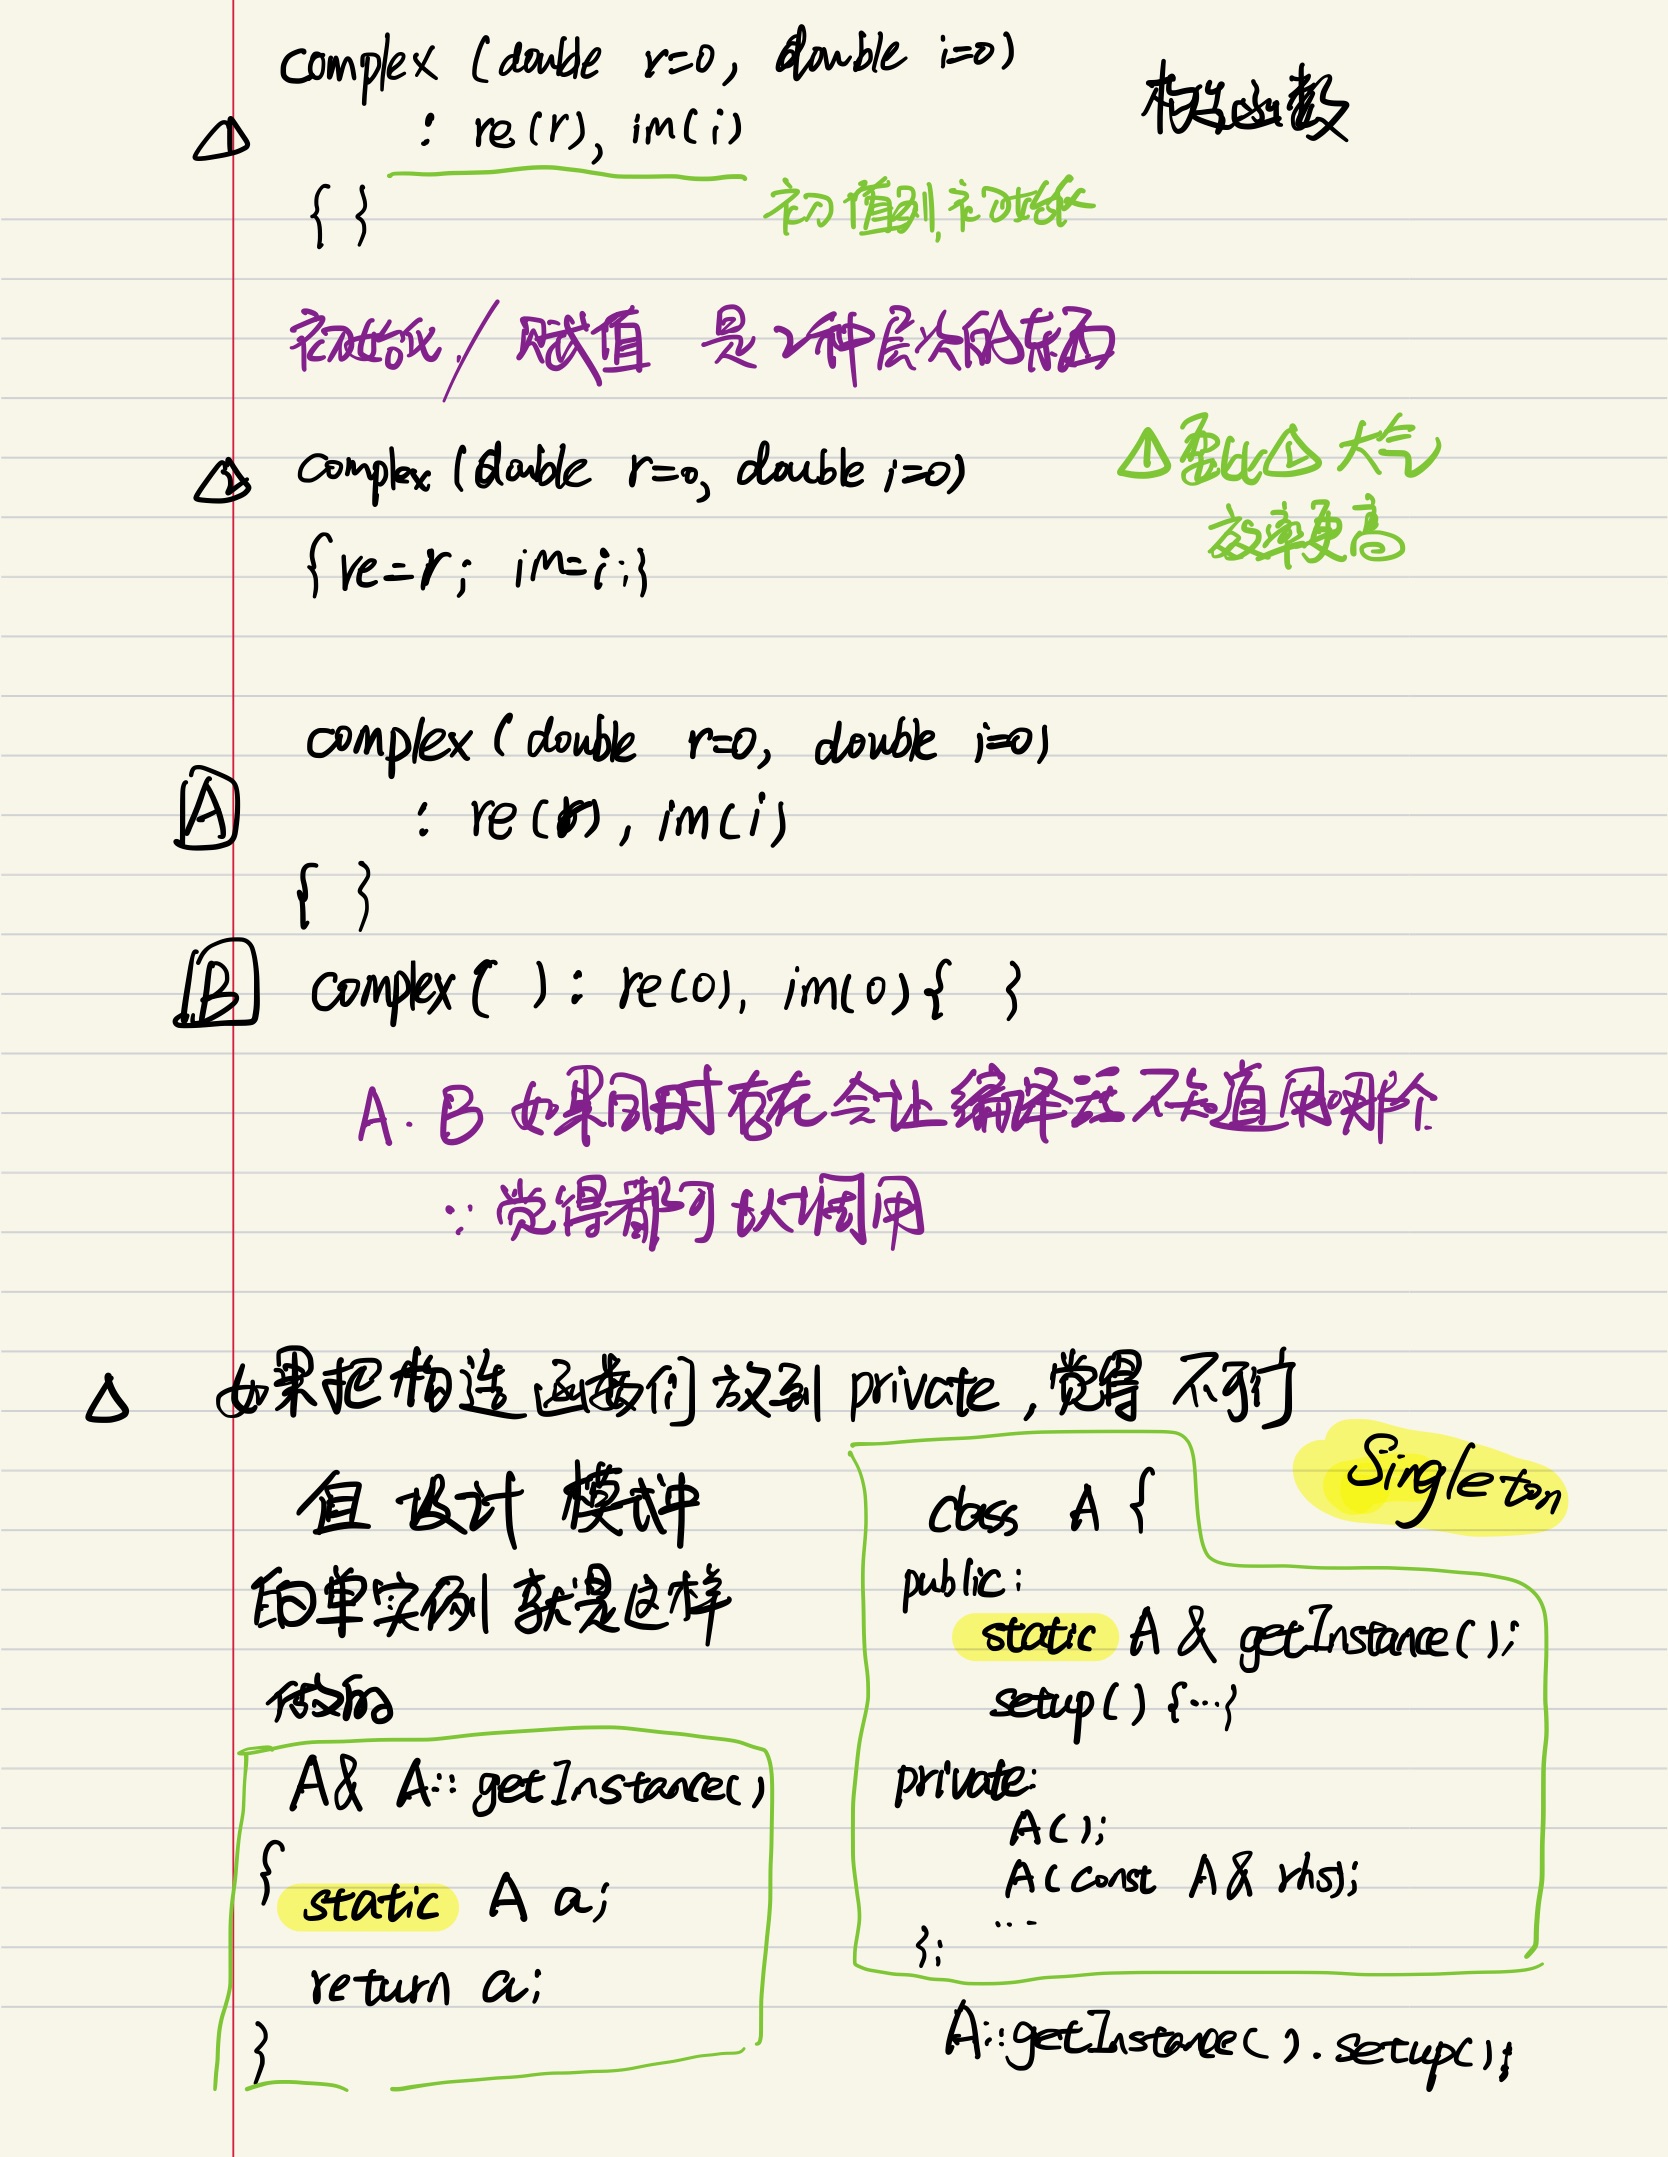 complex (double r=0, double i=0)
构造函数
△1 : re(r), im(i)
{ }
初值列,初始化
初始化/赋值 是2种层次的东西
△2 complex (double r=0, double i=0)
{re=r; im=i;}
△1要比△2大气
效率更高
complex (double r=0, double i=0)
A : re(r), im(i)
{ }
B complex( ) : re(0), im(0) { }
A. B 如果同时存在会让编译器不知道用哪个
∵觉得都可以调用
△ 如果把构造函数们放到private,觉得不可行
但设计模式中
的单实例就是这样
做的
A& A::getInstance()
{
static A a;
return a;
}
Singleton
class A {
public:
static A & getInstance();
setup() {...}
private:
A();
A(const A& rhs);
...
};
A::getInstance().setup();